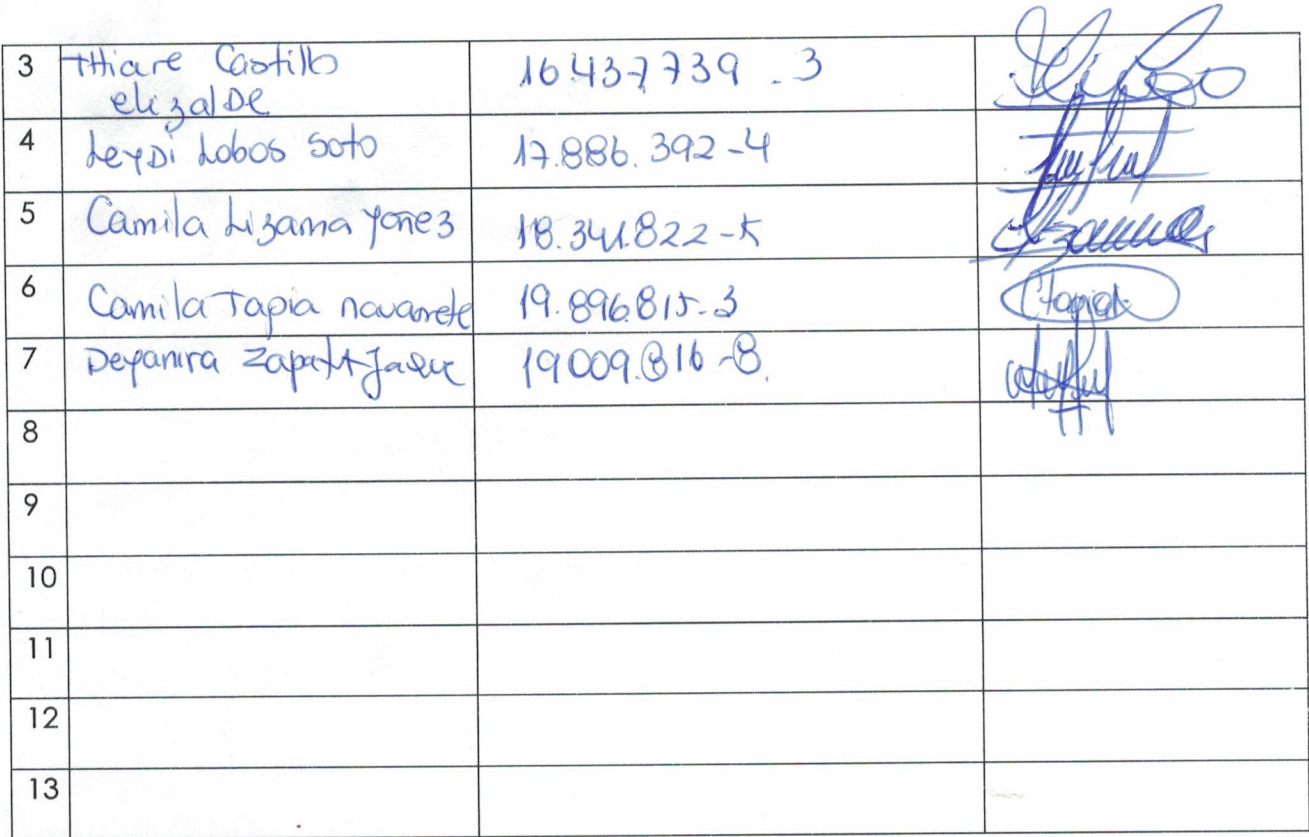 3 Thiare Castillo 16.437739-3
elizalDe
4 LeyDi Lobos Soto 17.886.392-4
5 Camila Lizama Yañez 18.341.822-5
6 Camila Tapia navarrete 19.896.815-3
7 Deyanira Zapata Jaque 19009.816-8.
8
9
10
11
12
13